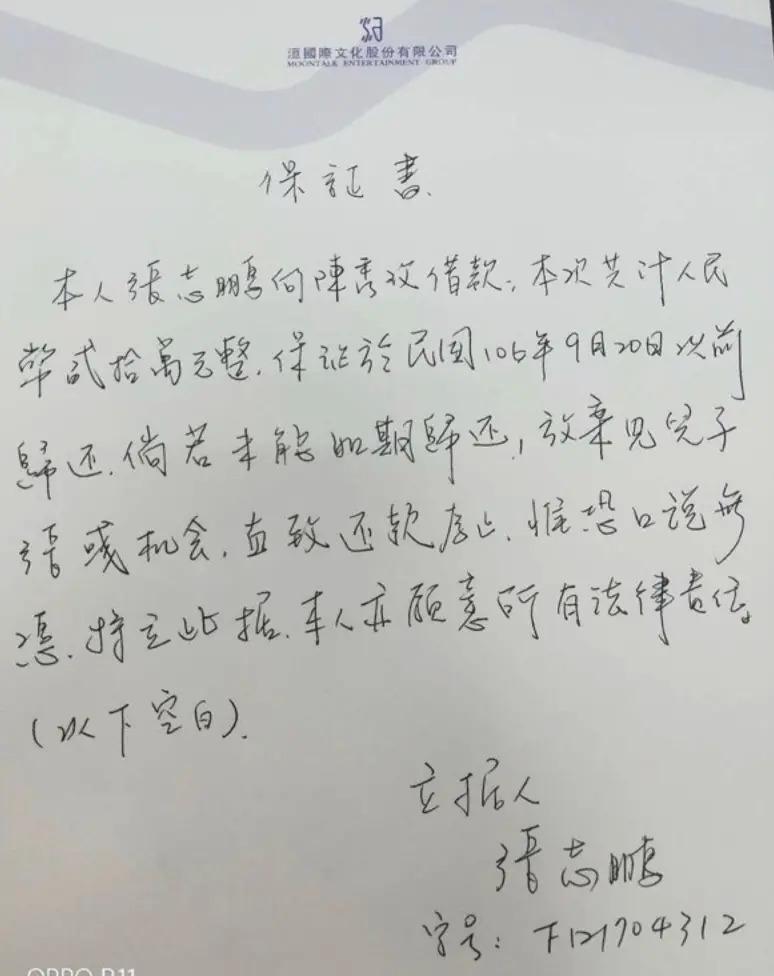 洹國際文化股份有限公司
MOONTALK ENTERTAINMENT GROUP
保証書.
本人張志鵬向陳秀玫借款,本次共計人民
幣貳拾萬元整.保証於民国106年9月20日以前
歸还.倘若未能如期歸还,放棄見兒子
張彧机会,直致还款為止.惟恐口说無
憑.特立此据.本人亦願意所有法律責任。
(以下空白).
立据人
張志鵬
字号:F121704312
OPPO R11